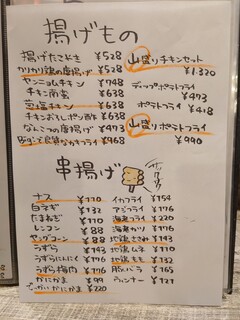 揚げもの
揚げたこやき ¥528
カリカリ鶏の唐揚げ ¥528
ヤンニョムチキン ¥748
チキン南蛮 ¥638
葱塩チキン ¥638
チキンおろしポン酢 ¥638
なんこつの唐揚げ ¥473
¥968
山盛りチキンセット
¥1.320
ディップポテトフライ
¥473
ポテトフライ ¥418
山盛りポテトフライ
¥990
串揚げ
ナス ¥110
白ネギ ¥132
たまねぎ ¥110
レンコン ¥88
ヤングコーン ¥88
うずら ¥143
うずらにんにく ¥176
うずら梅肉 ¥176
かにかま ¥99
でっかいかにかま ¥220
イカフライ ¥154
アジフライ ¥176
海老フライ ¥220
海老カツ ¥176
地鶏ささみ ¥143
地鶏ムネ ¥110
地鶏もも ¥132
豚バラ ¥165
ウインナー ¥121